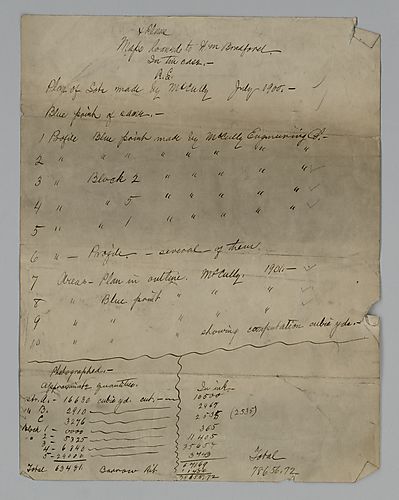 Maps loaned to Wm Bradford.
In the case.-
R.E.
Plan of Lots made by McCully July 1900.-
Blue print of same.-
1 Profile Blue print made by McCully Engineering Co.-
2 " " " " " " "
3 " Block 2 " " " "
4 " " 5 " " " "
5 " " 1 " " " "
6 " - Profile - several of them.
7 Areas - Plan in outline. McCully. 1904-
8 " Blue print " " "
9 " " " " "
10 " " " showing computation cubic yds.-
Photographed.-
Approximate quantities.
A.- 16630 cubic yds cut.-
" B. 2910
" C. 3276
Block 1- 0000
" 2- 5325
3-
4- 6340
5-
Total 63481 Barrow Pit.
In ink.
10500
2467
2535 (2535)
365
11405
35454
3743
Total
78656.72